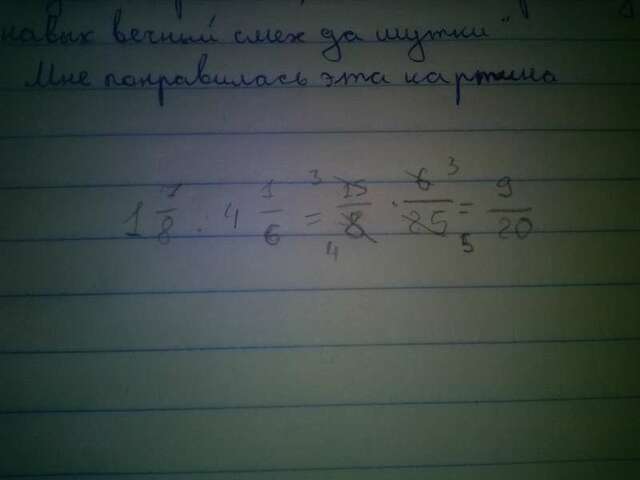 навых вечный смех да шутки"
Мне понравилась эта картина
1 7/8 : 4 1/6 = 15/8 · 6/25 = 9/20
3 3
4 5